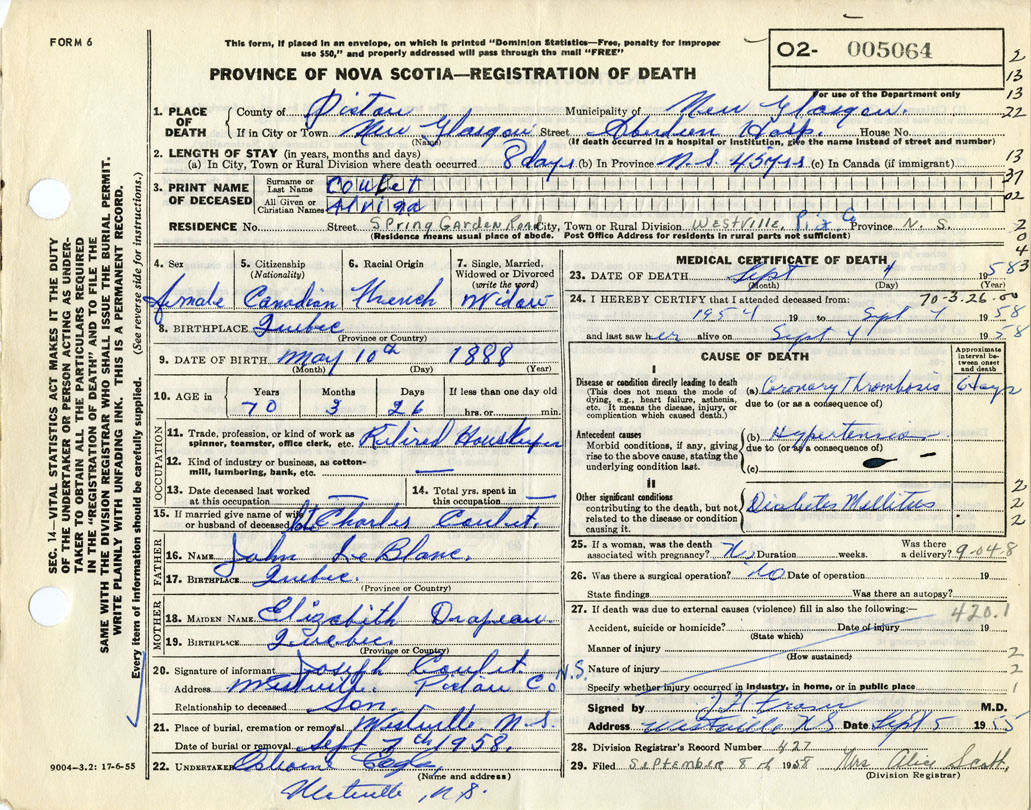 FORM 6
This form, if placed in an envelope, on which is printed "Dominion Statistics—Free, penalty for improper
use $50," and properly addressed will pass through the mail "FREE"
O2- 005064
For use of the Department only
PROVINCE OF NOVA SCOTIA—REGISTRATION OF DEATH
1. PLACE OF DEATH
County of Pictou Municipality of New Glasgow.
If in City or Town New Glasgow Street Aberdeen Hosp. House No.
(Name) (If death occurred in a hospital or institution, give the name instead of street and number)
2. LENGTH OF STAY (in years, months and days)
(a) In City, Town or Rural Division where death occurred 8 days (b) In Province N.S. 45 yrs (c) In Canada (if immigrant)
3. PRINT NAME OF DECEASED
Surname or Last Name Coulet
All Given or Christian Names Alvina
RESIDENCE No. Street Spring Garden Road City, Town or Rural Division Westville, Pict Co Province N. S.
(Residence means usual place of abode. Post Office Address for residents in rural parts not sufficient)
4. Sex female
5. Citizenship (Nationality) Canadian
6. Racial Origin French
7. Single, Married, Widowed or Divorced (write the word) Widow
8. BIRTHPLACE Quebec
(Province or Country)
9. DATE OF BIRTH May 10th 1888
(Month) (Day) (Year)
10. AGE in Years 70 Months 3 Days 26 If less than one day old hrs. or min.
OCCUPATION
11. Trade, profession, or kind of work as spinner, teamster, office clerk, etc. Retired Houskeeper
12. Kind of industry or business, as cotton-mill, lumbering, bank, etc. —
13. Date deceased last worked at this occupation —
14. Total yrs. spent in this occupation —
15. If married give name of wife or husband of deceased Charles Coulet.
FATHER
16. NAME John LeBlanc.
17. BIRTHPLACE Quebec.
(Province or Country)
MOTHER
18. MAIDEN NAME Elizabeth Drapeau.
19. BIRTHPLACE Quebec.
(Province or Country)
20. Signature of informant Joseph Coulet.
Address Westville. Pictou Co. N.S.
Relationship to deceased Son.
21. Place of burial, cremation or removal Westville N.S.
Date of burial or removal Sept 7 1958.
22. UNDERTAKER Osborne
(Name and address)
Westville, N.S.
MEDICAL CERTIFICATE OF DEATH
23. DATE OF DEATH Sept 4 1958
(Month) (Day) (Year)
70-3-26-00
24. I HEREBY CERTIFY that I attended deceased from:
1954 19 to Sept 4 1958
and last saw her alive on Sept 4 1958
CAUSE OF DEATH
Approximate interval between onset and death
I
Disease or condition directly leading to death
(This does not mean the mode of dying, e.g., heart failure, asthenia, etc. It means the disease, injury, or complication which caused death.)
(a) Coronary Thrombosis 6 days
due to (or as a consequence of)
Antecedent causes
Morbid conditions, if any, giving rise to the above cause, stating the underlying condition last.
(b) Hypertension
due to (or as a consequence of)
(c)
II
Other significant conditions
contributing to the death, but not related to the disease or condition causing it.
Diabetes Mellitus
25. If a woman, was the death associated with pregnancy? No Duration weeks. Was there a delivery? 9-04-8
26. Was there a surgical operation? No Date of operation 19
State findings Was there an autopsy?
27. If death was due to external causes (violence) fill in also the following:—
420.1
Accident, suicide or homicide? Date of injury 19
(State which)
Manner of injury
(How sustained)
Nature of injury
Specify whether injury occurred in industry, in home, or in public place
Signed by M.D.
Address Westville N.S. Date Sept 5 1955
28. Division Registrar's Record Number 427
29. Filed September 8th 1958 Mrs Alice Scott,
(Division Registrar)
SEC. 14—VITAL STATISTICS ACT MAKES IT THE DUTY
OF THE UNDERTAKER OR PERSON ACTING AS UNDER-
TAKER TO OBTAIN ALL THE PARTICULARS REQUIRED
IN THE "REGISTRATION OF DEATH" AND TO FILE THE
SAME WITH THE DIVISION REGISTRAR WHO SHALL ISSUE THE BURIAL PERMIT.
WRITE PLAINLY WITH UNFADING INK. THIS IS A PERMANENT RECORD.
Every item of information should be carefully supplied. (See reverse side for instructions.)
9004-3.2: 17-6-55
2
13
13
22
13
37
02
2
0
4
3
2
2
2
2
2
1